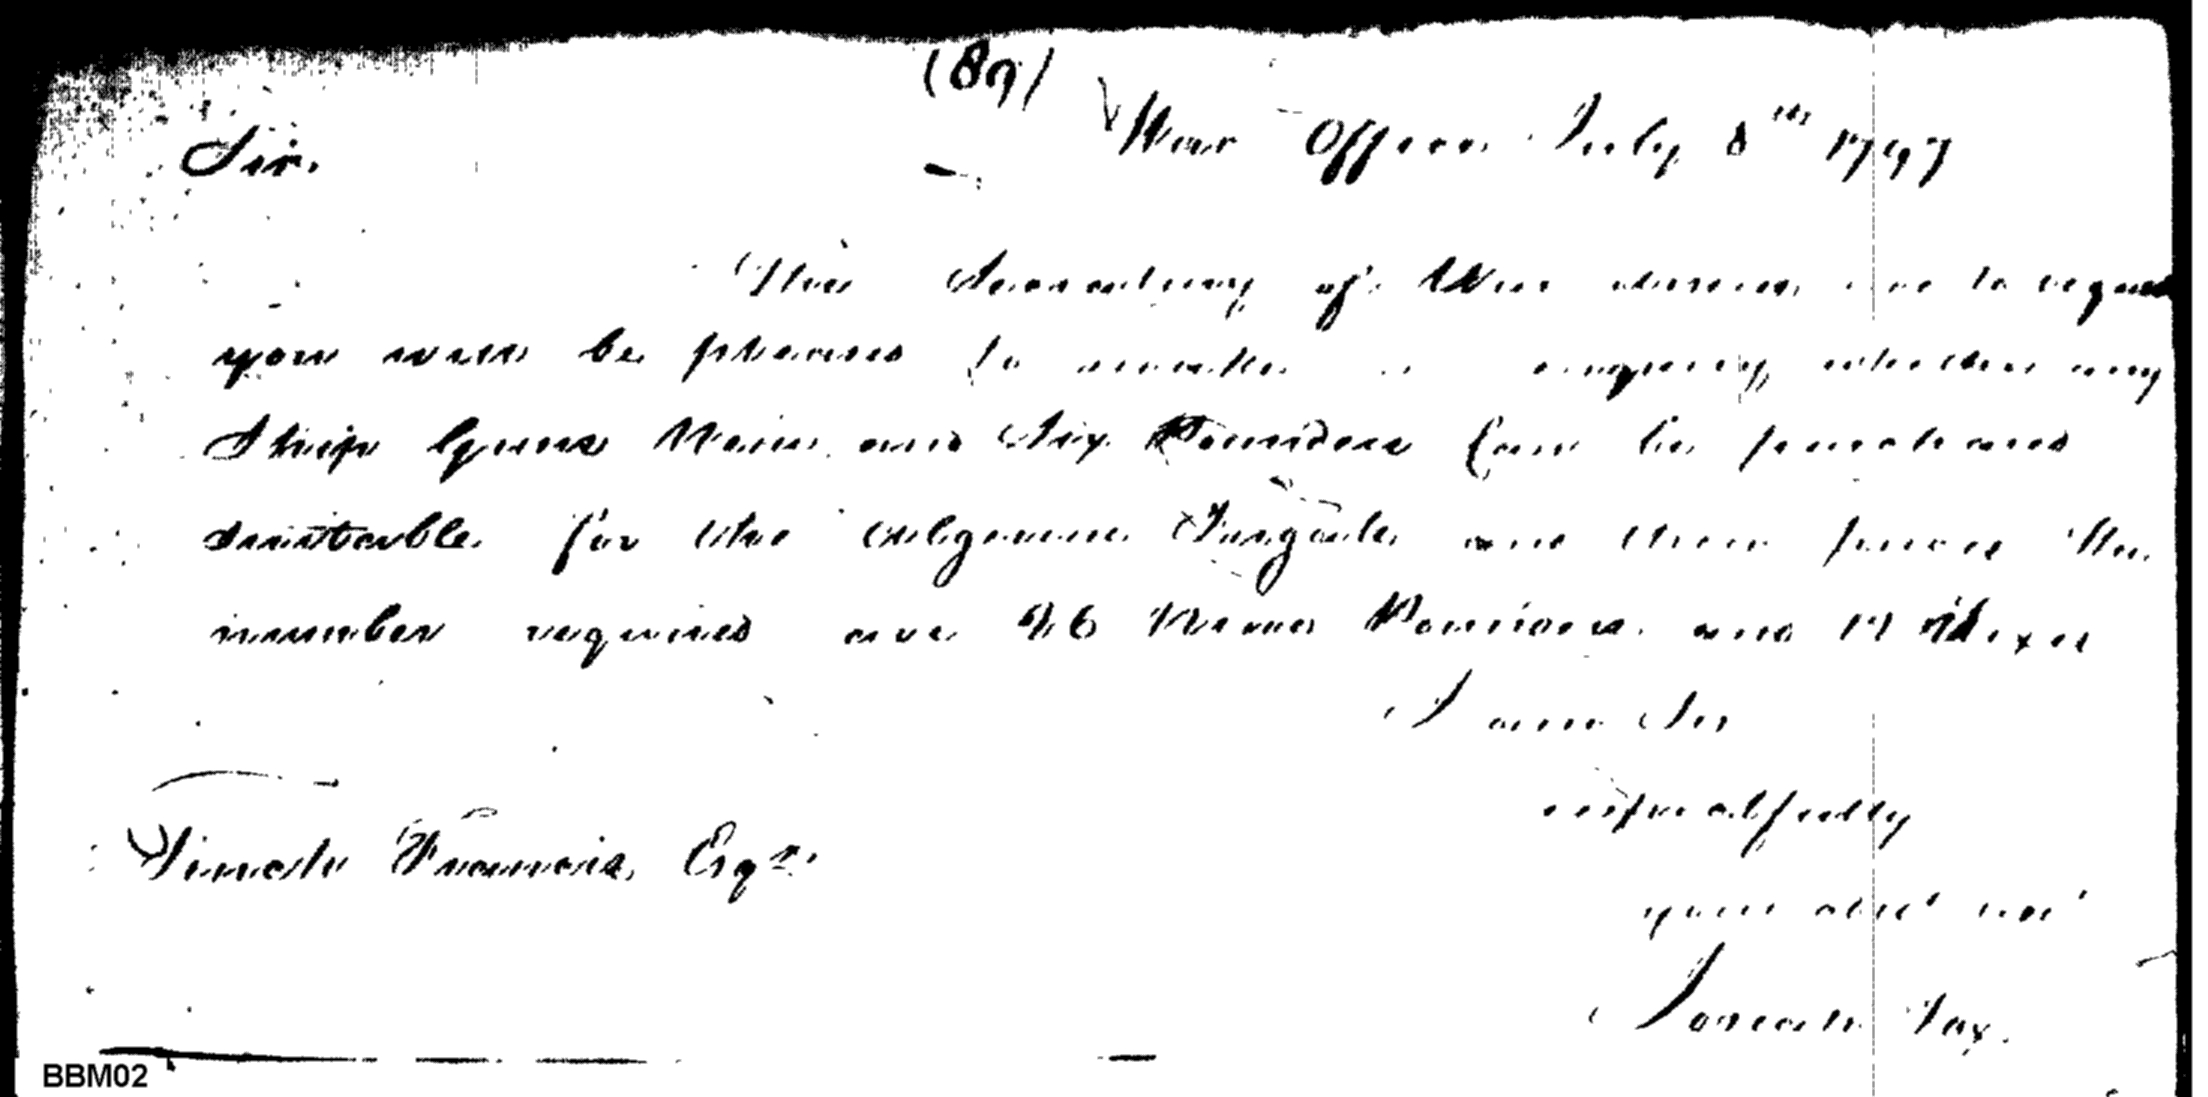 (89)
War Office July 8th 1797
Sir.
The Secretary of War desires me to request
you will be pleased to make enquiry, whether any
Ship Guns Nine and Six Pounders Can be purchased
suitable for the Algerine Frigate and their price the
number required are 26 Nine Pounders and 12 Sixes
I am Sir
respectfully
your obed
Tench Francis, Esqr.
BBM02